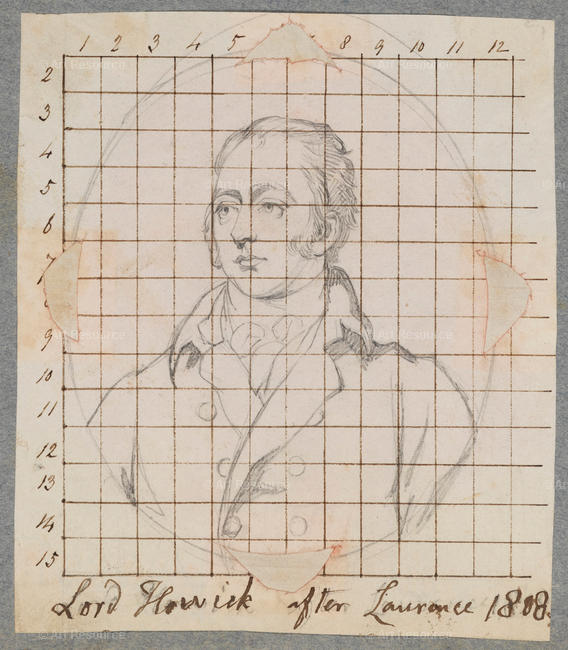 1 2 3 4 5 8 9 10 11 12
2
3
4
5
6
7
9
10
11
12
13
14
15
Lord Howick after Laurance 1808.
© Art Resource